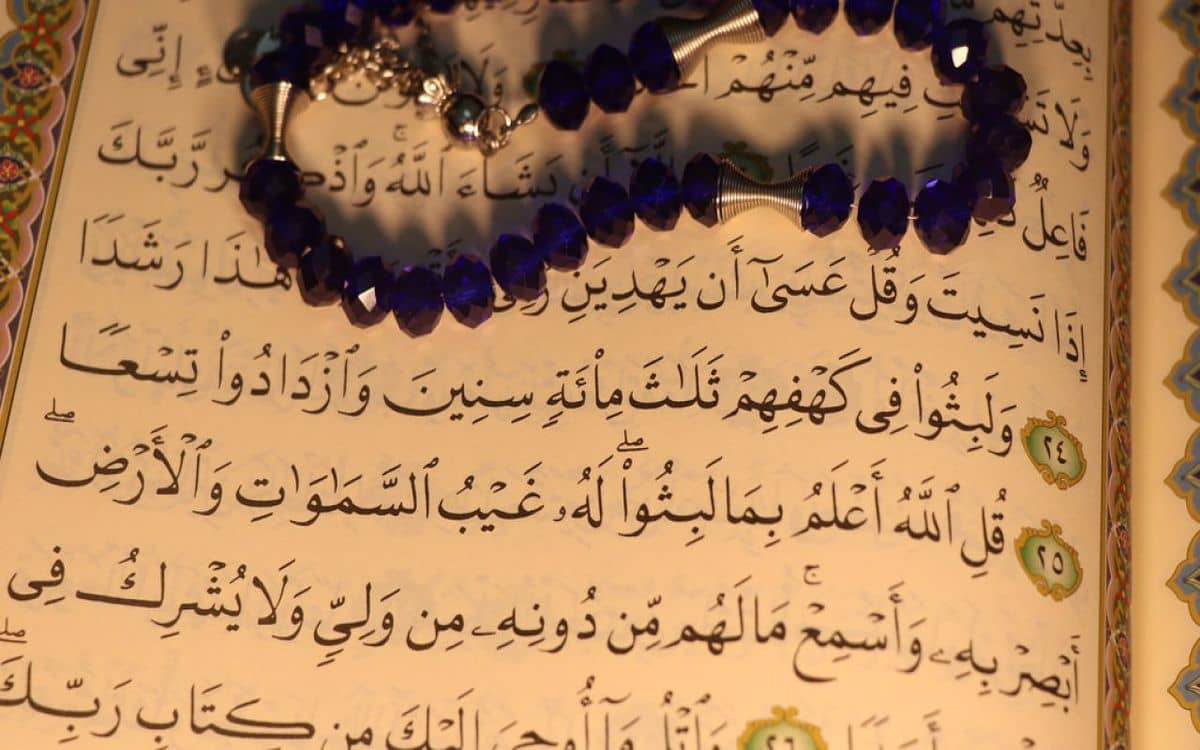 يعذبهم
وَلَا فِيهِم مِّنْهُمْ إِنِّى
فَاعِلٌ أَن يَشَآءَ ٱللَّهُ ۚ رَّبَّكَ
إِذَا نَسِيتَ وَقُلْ عَسَىٰٓ أَن يَهْدِيَنِ هَٰذَا رَشَدًا
٢٤ وَلَبِثُوا۟ فِى كَهْفِهِمْ ثَلَٰثَ مِا۟ئَةٍ سِنِينَ وَٱزْدَادُوا۟ تِسْعًا
٢٥ قُلِ ٱللَّهُ أَعْلَمُ بِمَا لَبِثُوا۟ ۖ لَهُۥ غَيْبُ ٱلسَّمَٰوَٰتِ وَٱلْأَرْضِ ۖ
أَبْصِرْ بِهِۦ وَأَسْمِعْ ۚ مَا لَهُم مِّن دُونِهِۦ مِن وَلِىٍّ وَلَا يُشْرِكُ فِى
٢٦ وَٱتْلُ مَآ أُوحِىَ إِلَيْكَ مِن كِتَابِ رَبِّكَ ۖ